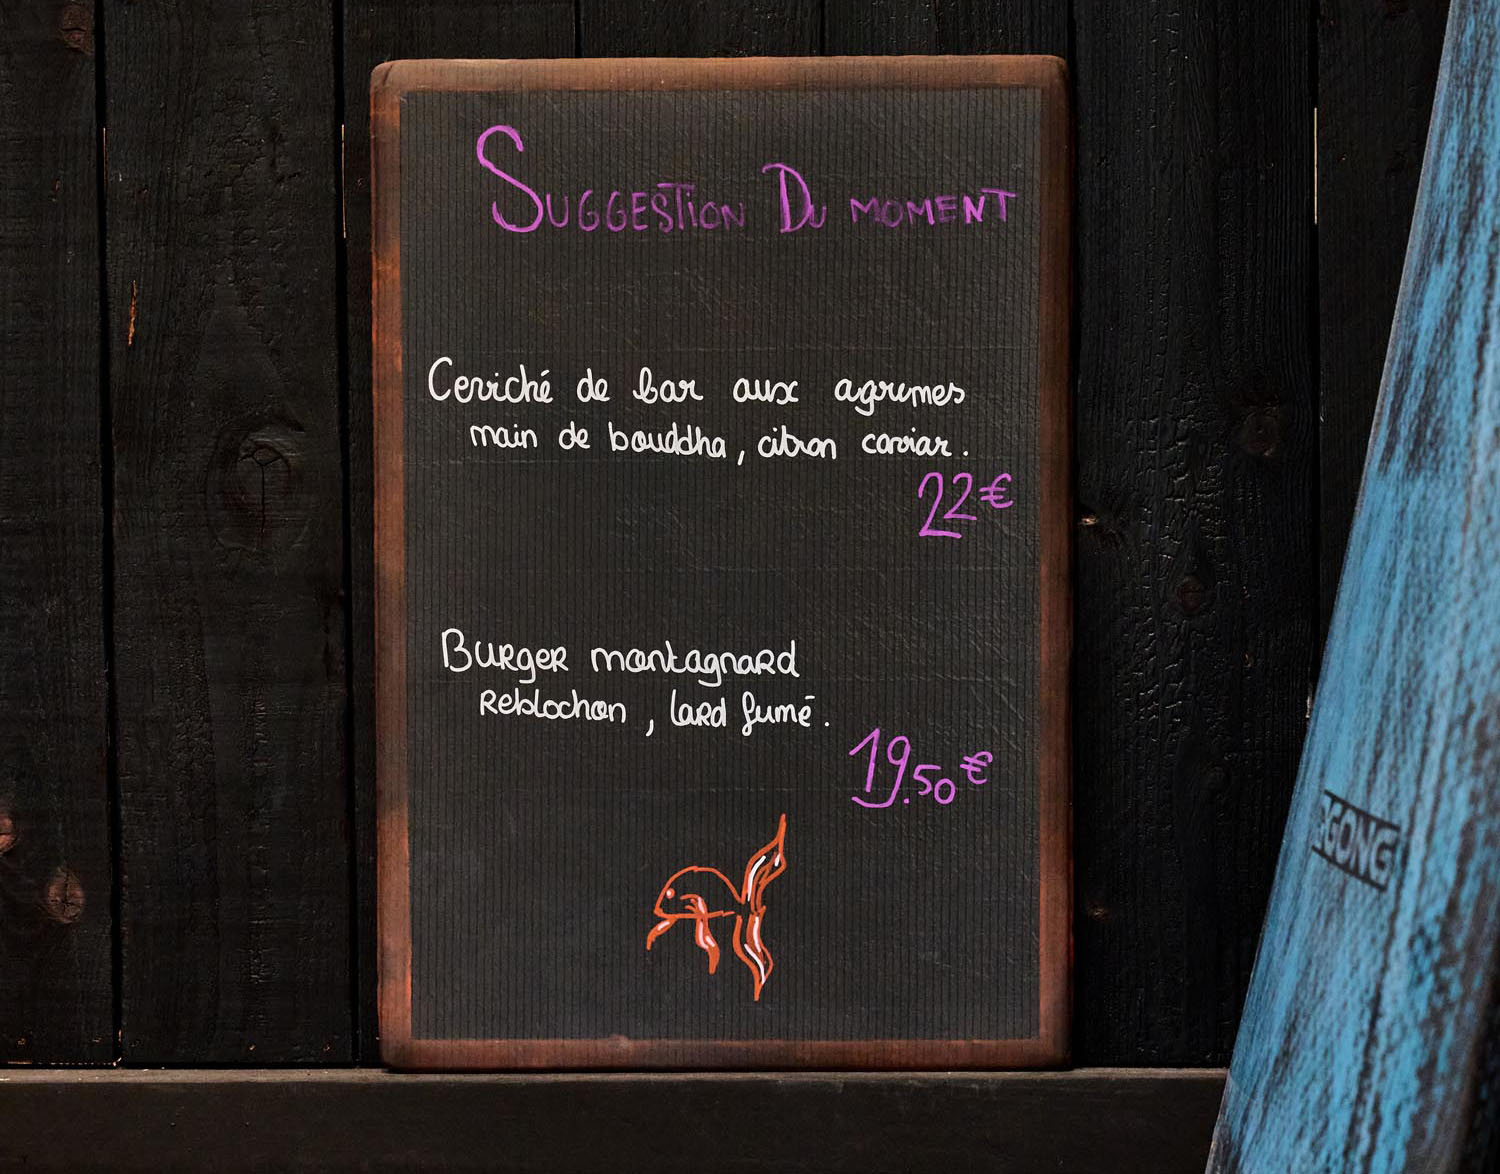 SUGGESTION DU MOMENT
Ceviché de bar aux agrumes
main de bouddha, citron caviar.
22€
BURGER montagnard
Reblochon, lard fumé.
19.50€
GONG